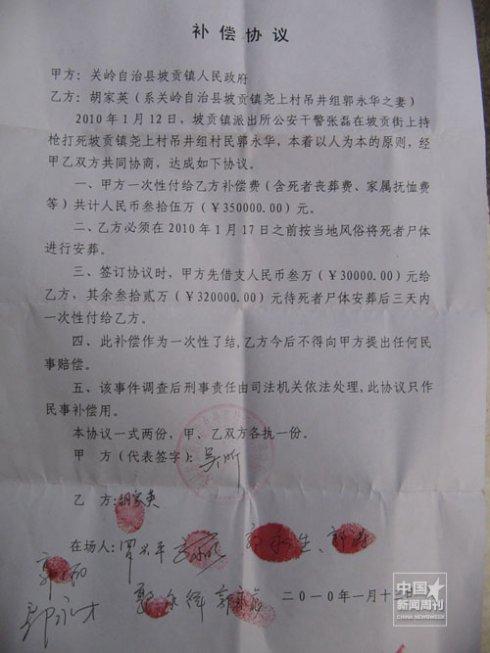 补偿协议
甲方：关岭自治县坡贡镇人民政府
乙方：胡家英（系关岭自治县坡贡镇尧上村吊井组郭永华之妻）
2010年1月12日，坡贡镇派出所公安干警张磊在坡贡街上持
枪打死坡贡镇尧上村吊井组村民郭永华，本着以人为本的原则，经
甲乙双方共同协商，达成如下协议。
一、甲方一次性付给乙方补偿费（含死者丧葬费、家属抚恤费
等）共计人民币叁拾伍万（￥350000.00）元。
二、乙方必须在2010年1月17日之前按当地风俗将死者尸体
进行安葬。
三、签订协议时，甲方先借支人民币叁万（￥30000.00）元给
乙方，其余叁拾贰万（￥320000.00）元待死者尸体安葬后三天内
一次性付给乙方。
四、此补偿作为一次性了结，乙方今后不得向甲方提出任何民
事赔偿。
五、该事件调查后刑事责任由司法机关依法处理，此协议只作
民事补偿用。
本协议一式两份，甲、乙双方各执一份。
甲 方（代表签字）：
乙 方：胡家英
在场人：
郭永才
二〇一〇年一月十
中国新闻周刊
CHINA NEWSWEEK